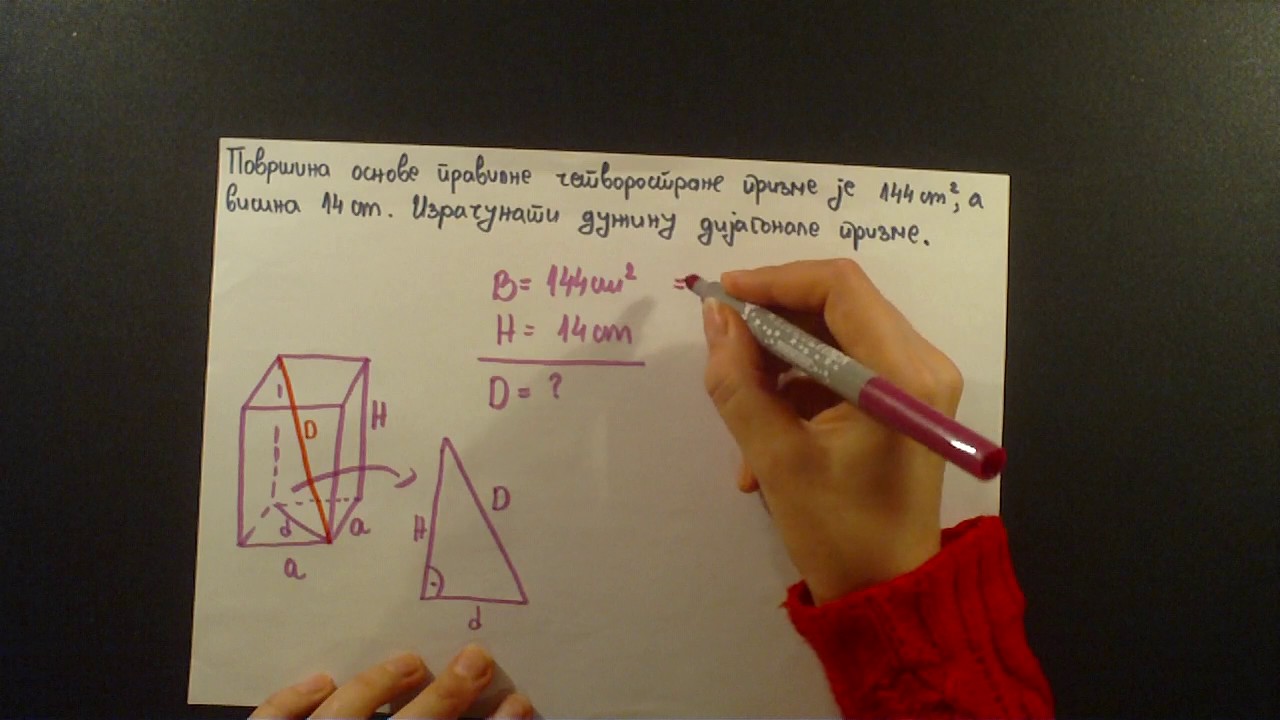 Површина основе правилне четворостране призме је 144 cm², а
висина 14 cm. Израчунати дужину дијагонале призме.
B = 144 cm² =
H = 14 cm
D = ?
D
H
d
a
a
H
D
d